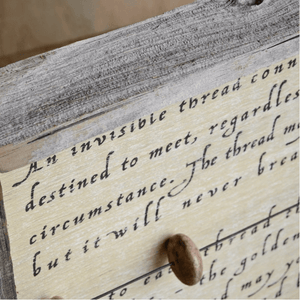 An invisible thread conn
destined to meet, regardles
circumstance. The thread ma
but it will never brea
to ea thread
the golden
d may yo